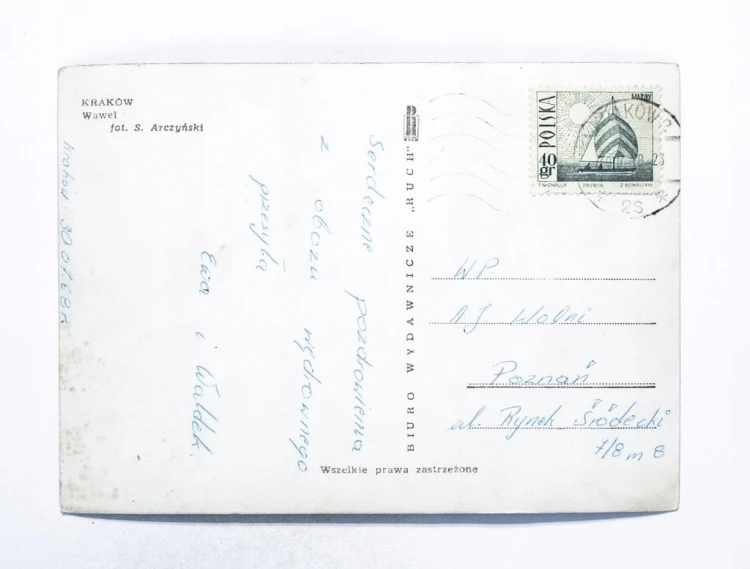 KRAKÓW
Wawel
fot. S. Arczyński
Kraków 30.07.68r.
Serdeczne pozdrowienia
z obozu wędrownego
przesyła
Ewa i Waldek.
BIURO WYDAWNICZE "RUCH"
Wszelkie prawa zastrzeżone
POLSKA
40 gr
MAZURY
KRAKÓW 2
23
2S
W.P.
Wolni
Poznań
ul. Rynek Śródecki
7/8 m 8